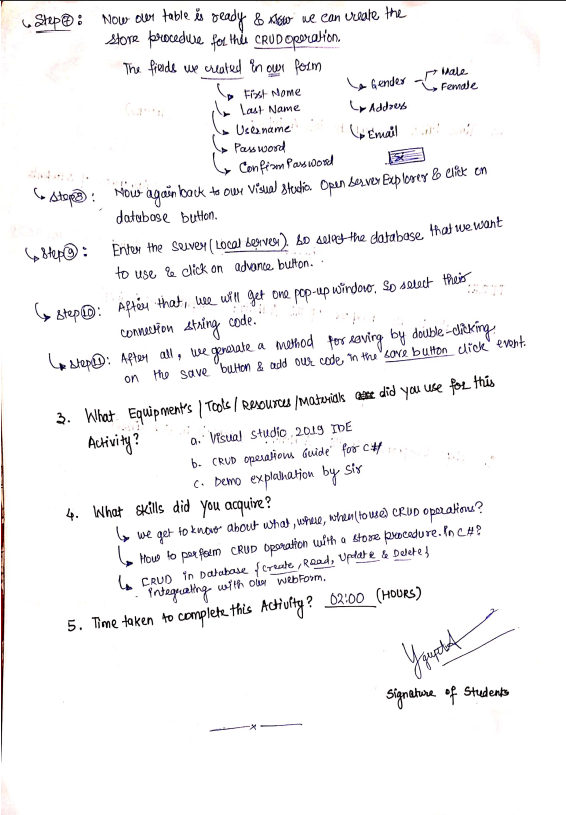 Step⑦: Now our table is ready & now we can create the
store procedure for this CRUD operation.
The fields we created in our form
First Name
Last Name
Username
Password
Confirm Password
Gender
Male
Female
Address
Email
Step⑧: Now again back to our Visual Studio. Open Server Explorer & click on
database button.
Step⑨: Enter the Server (Local Server). So select the database that we want
to use & click on advance button.
Step⑩: After that, we will get one pop-up window. So select their
connection string code.
Step⑪: After all, we generate a method for saving by double-clicking
on the save button & add our code, in the save button click event.
3. What Equipment's / Tools / Resources / Materials did you use for this
Activity?
a. Visual Studio 2019 IDE
b. CRUD operations Guide for C#
c. Demo explaination by Sir
4. What skills did you acquire?
we get to know about what, where, when (to use) CRUD operations?
How to perform CRUD operation with a store procedure. In C#?
CRUD in Database { Create, Read, Update & Delete }
integrating with our webform.
5. Time taken to complete this Activity? 02:00 (HOURS)
Signature of Students